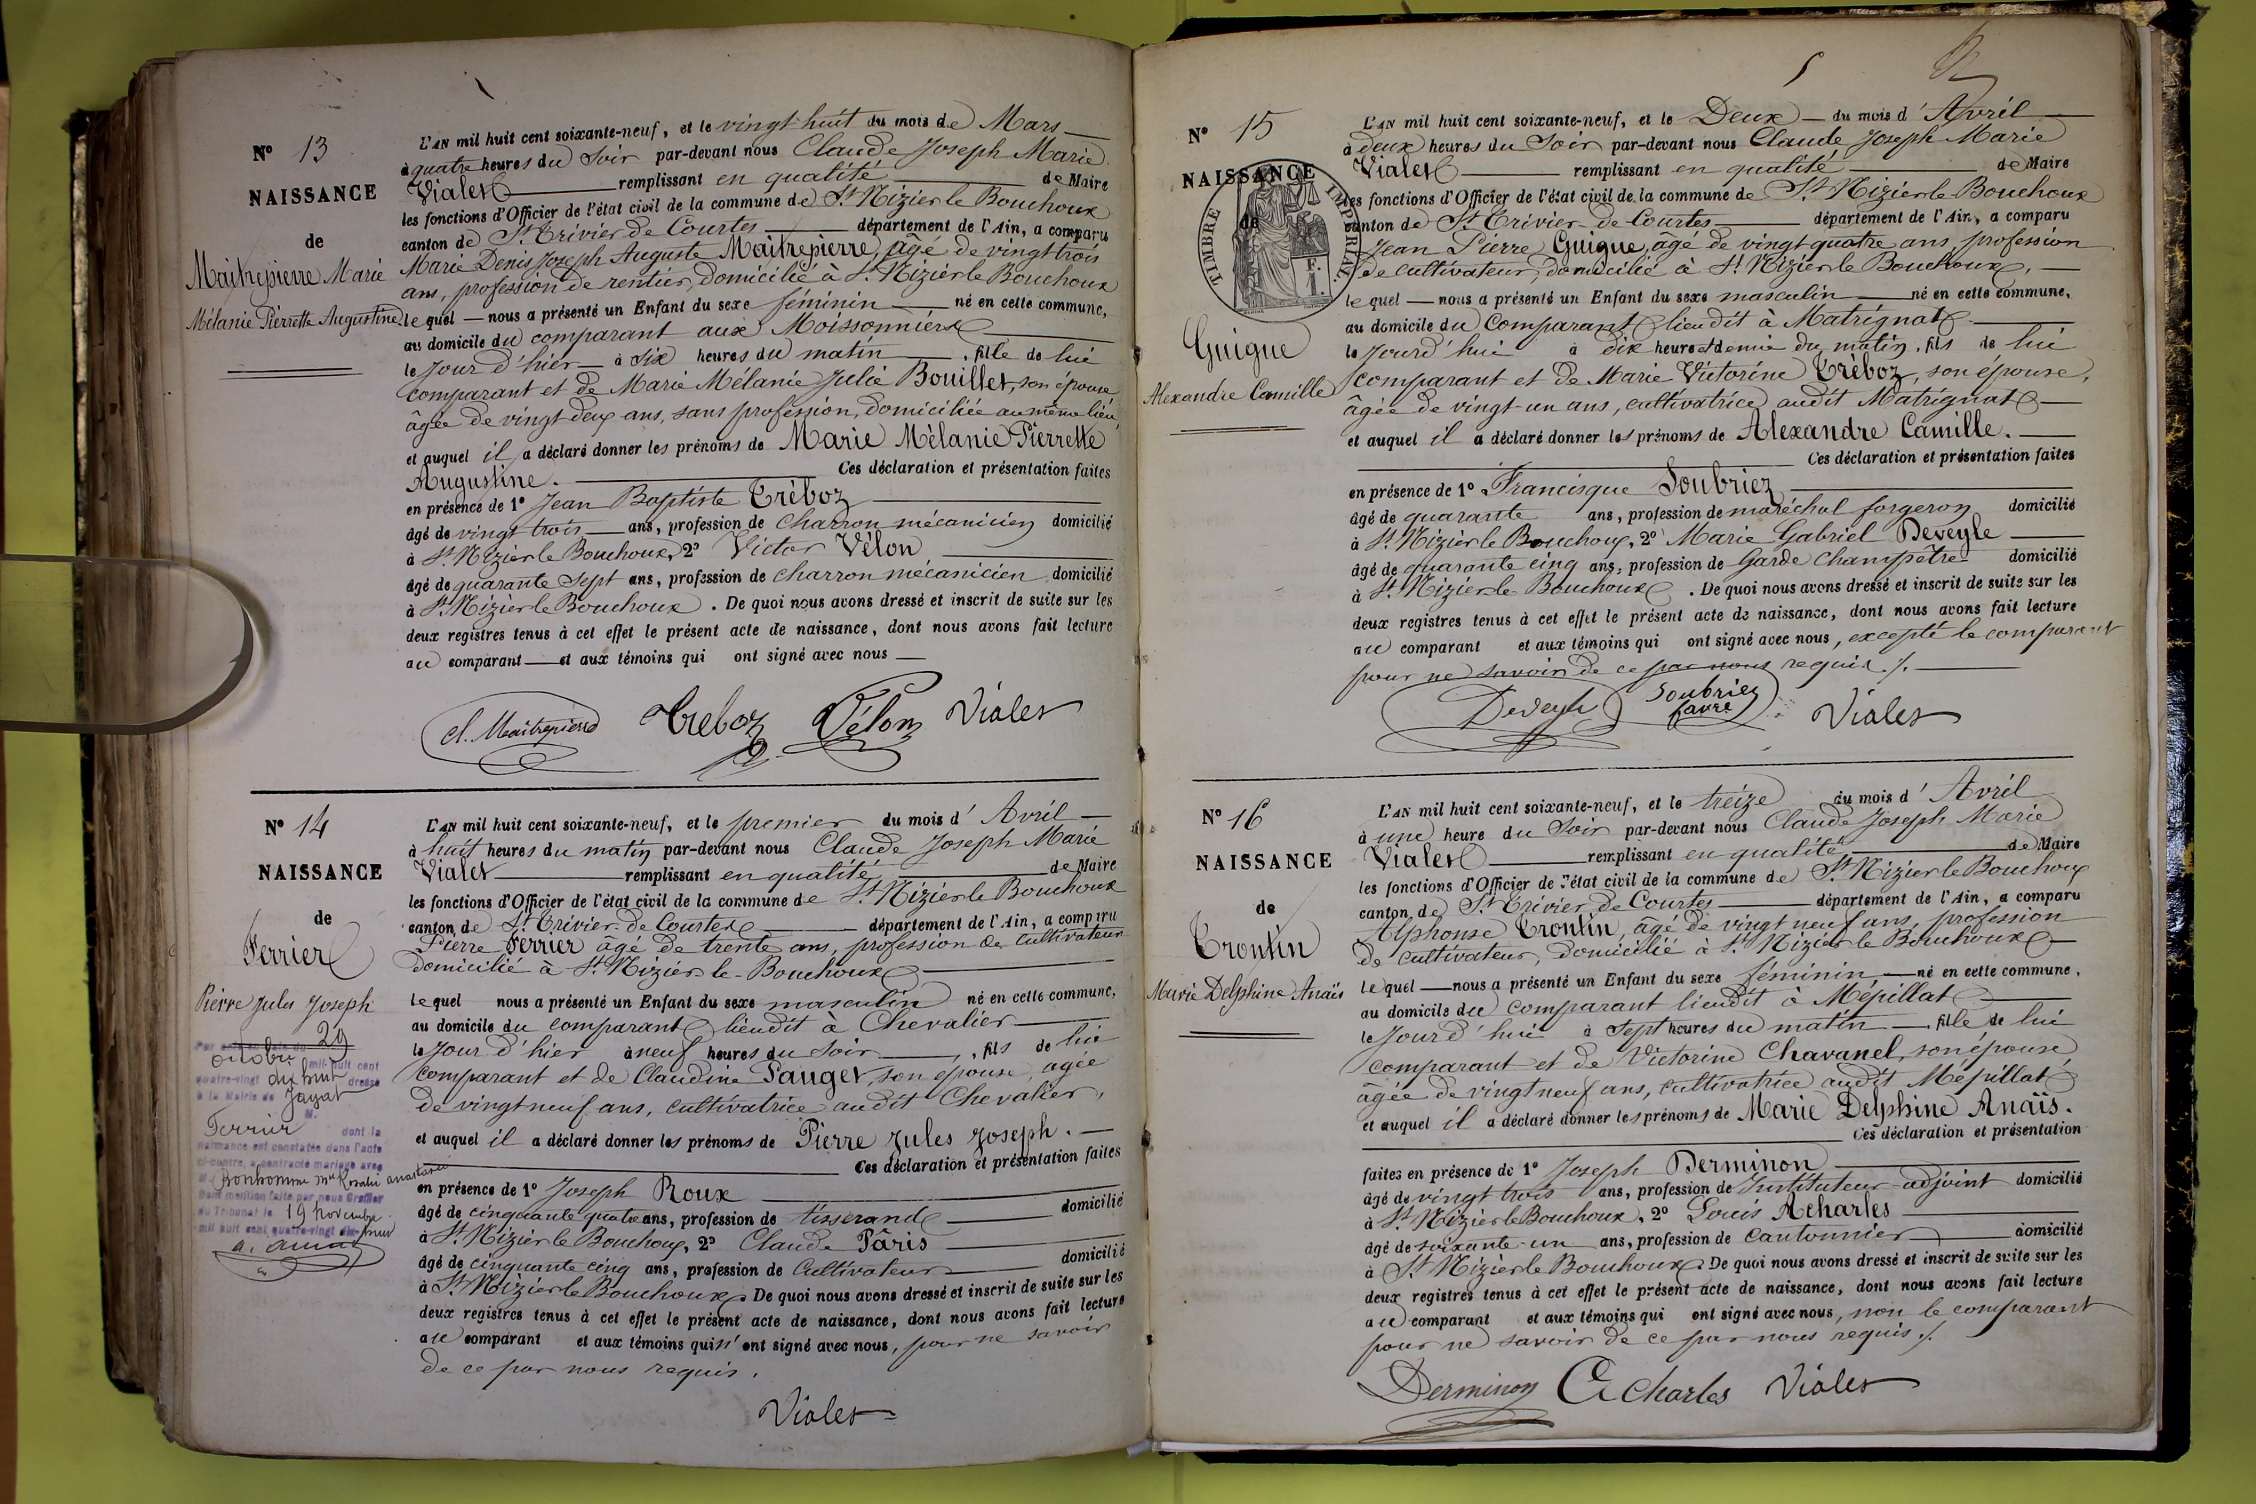 Nº 13
NAISSANCE
de
Maitrepierre Marie
Mélanie Pierrette Augustine
L'AN mil huit cent soixante-neuf, et le vingt-huit du mois de Mars
à quatre heures du Soir par-devant nous Claude Joseph Marie
Vialet remplissant en qualité de Maire
les fonctions d'Officier de l'état civil de la commune de St Nizier le Bouchoux
canton de St Trivier de Courtes département de l'Ain, a comparu
Marie Denis Joseph Auguste Maitrepierre, âgé de vingt trois
ans, profession de rentier, domicilié à St Nizier le Bouchoux
le quel nous a présenté un Enfant du sexe féminin né en cette commune,
au domicile du comparant aux Moissonniers
le Jour d'hier à six heures du matin, fille de lui
comparant et de Marie Mélanie Julie Bouillet, son épouse,
âgée de vingt deux ans, sans profession, domiciliée au même lieu,
et auquel il a déclaré donner les prénoms de Marie Mélanie Pierrette
Augustine. Ces déclaration et présentation faites
en présence de 1º Jean Baptiste Tréboz
âgé de vingt trois ans, profession de charron mécanicien domicilié
à St Nizier le Bouchoux, 2º Victor Vélon
âgé de quarante sept ans, profession de charron mécanicien domicilié
à St Nizier le Bouchoux. De quoi nous avons dressé et inscrit de suite sur les
deux registres tenus à cet effet le présent acte de naissance, dont nous avons fait lecture
au comparant et aux témoins qui ont signé avec nous
cl. Maitrepierre Treboz Vélon Vialet
Nº 14
NAISSANCE
de
Ferrier
Pierre Jules Joseph
29
octobre mil huit cent
quatre-vingt dix huit dressé
à la Mairie de Jayat
M.
Ferrier dont la
naissance est constatée dans l'acte
ci-contre, a contracté mariage avec
Bonhomme Mie Rosalie
Dont mention faite par nous Greffier
du Tribunal le 19 novembre
mil huit cent quatre-vingt dix-huit
L'AN mil huit cent soixante-neuf, et le premier du mois d'Avril
à huit heures du matin par-devant nous Claude Joseph Marie
Vialet remplissant en qualité de Maire
les fonctions d'Officier de l'état civil de la commune de St Nizier le Bouchoux
canton de St Trivier de Courtes département de l'Ain, a comparu
Pierre Ferrier âgé de trente ans, profession de cultivateur
domicilié à St Nizier le Bouchoux
le quel nous a présenté un Enfant du sexe masculin né en cette commune,
au domicile du comparant lieudit à Chevalier
le Jour d'hier à neuf heures du soir, fils de lui
comparant et de Claudine Pauget, son épouse, agée
de vingt neuf ans, cultivatrice audit Chevalier,
et auquel il a déclaré donner les prénoms de Pierre Jules Joseph.
Ces déclaration et présentation faites
en présence de 1º Joseph Roux
âgé de cinquante quatre ans, profession de tisserand domicilié
à St Nizier le Bouchoux, 2º Claude Pâris
âgé de cinquante cinq ans, profession de Cultivateur domicilié
à St Nizier le Bouchoux. De quoi nous avons dressé et inscrit de suite sur les
deux registres tenus à cet effet le présent acte de naissance, dont nous avons fait lecture
au comparant et aux témoins qui n'ont signé avec nous, pour ne savoir
de ce par nous requis.
Vialet
5
Nº 15
NAISSANCE
de
TIMBRE IMPERIAL.
Guigue
Alexandre Camille
L'AN mil huit cent soixante-neuf, et le Deux du mois d'Avril
à deux heures du Soir par-devant nous Claude Joseph Marie
Vialet remplissant en qualité de Maire
les fonctions d'Officier de l'état civil de la commune de St Nizier le Bouchoux
canton de St Trivier de Courtes département de l'Ain, a comparu
Jean Pierre Guigue, âgé de vingt quatre ans, profession
de cultivateur, domicilié à St Nizier le Bouchoux,
le quel nous a présenté un Enfant du sexe masculin né en cette commune,
au domicile du Comparant lieudit à Matrignat
le Jourd'hui à dix heures et demie du matin, fils de lui
comparant et de Marie Victorine Tréboz, son épouse,
âgée de vingt-un ans, cultivatrice audit Matrignat
et auquel il a déclaré donner les prénoms de Alexandre Camille.
Ces déclaration et présentation faites
en présence de 1º Francisque Soubriez
âgé de quarante ans, profession de maréchal forgeron domicilié
à St Nizier le Bouchoux, 2º Marie Gabriel Deveyle
âgé de quarante cinq ans, profession de Garde Champêtre domicilié
à St Nizier le Bouchoux. De quoi nous avons dressé et inscrit de suite sur les
deux registres tenus à cet effet le présent acte de naissance, dont nous avons fait lecture
au comparant et aux témoins qui ont signé avec nous, excepté le comparant
pour ne savoir de ce par nous requis./.
Deveyle Soubriez
favre Vialet
Nº 16
NAISSANCE
de
Trontin
Marie Delphine Anaïs
L'AN mil huit cent soixante-neuf, et le treize du mois d'Avril
à une heure du Soir par-devant nous Claude Joseph Marie
Vialet remplissant en qualité de Maire
les fonctions d'Officier de l'état civil de la commune de St Nizier le Bouchoux
canton de St Trivier de Courtes département de l'Ain, a comparu
Alphonse Trontin, âgé de vingt neuf ans, profession
de cultivateur, domicilié à St Nizier le Bouchoux
le quel nous a présenté un Enfant du sexe féminin né en cette commune,
au domicile du comparant lieudit à Mépillat
le Jourd'hui à sept heures du matin, fille de lui
comparant et de Victorine Chavanel, son épouse,
âgée de vingt neuf ans, cultivatrice audit Mépillat
et auquel il a déclaré donner les prénoms de Marie Delphine Anaïs.
Ces déclaration et présentation
faites en présence de 1º Joseph Derminon
âgé de vingt trois ans, profession de Instituteur-adjoint domicilié
à St Nizier le Bouchoux, 2º Louis Acharles
âgé de soixante-un ans, profession de Cantonnier domicilié
à St Nizier le Bouchoux. De quoi nous avons dressé et inscrit de suite sur les
deux registres tenus à cet effet le présent acte de naissance, dont nous avons fait lecture
au comparant et aux témoins qui ont signé avec nous, non le comparant
pour ne savoir de ce par nous requis./.
Derminon Acharles Vialet